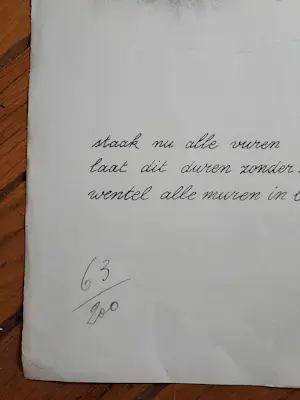 staak nu alle vuren
laat dit duren zonder
wentel alle muren in
63
200